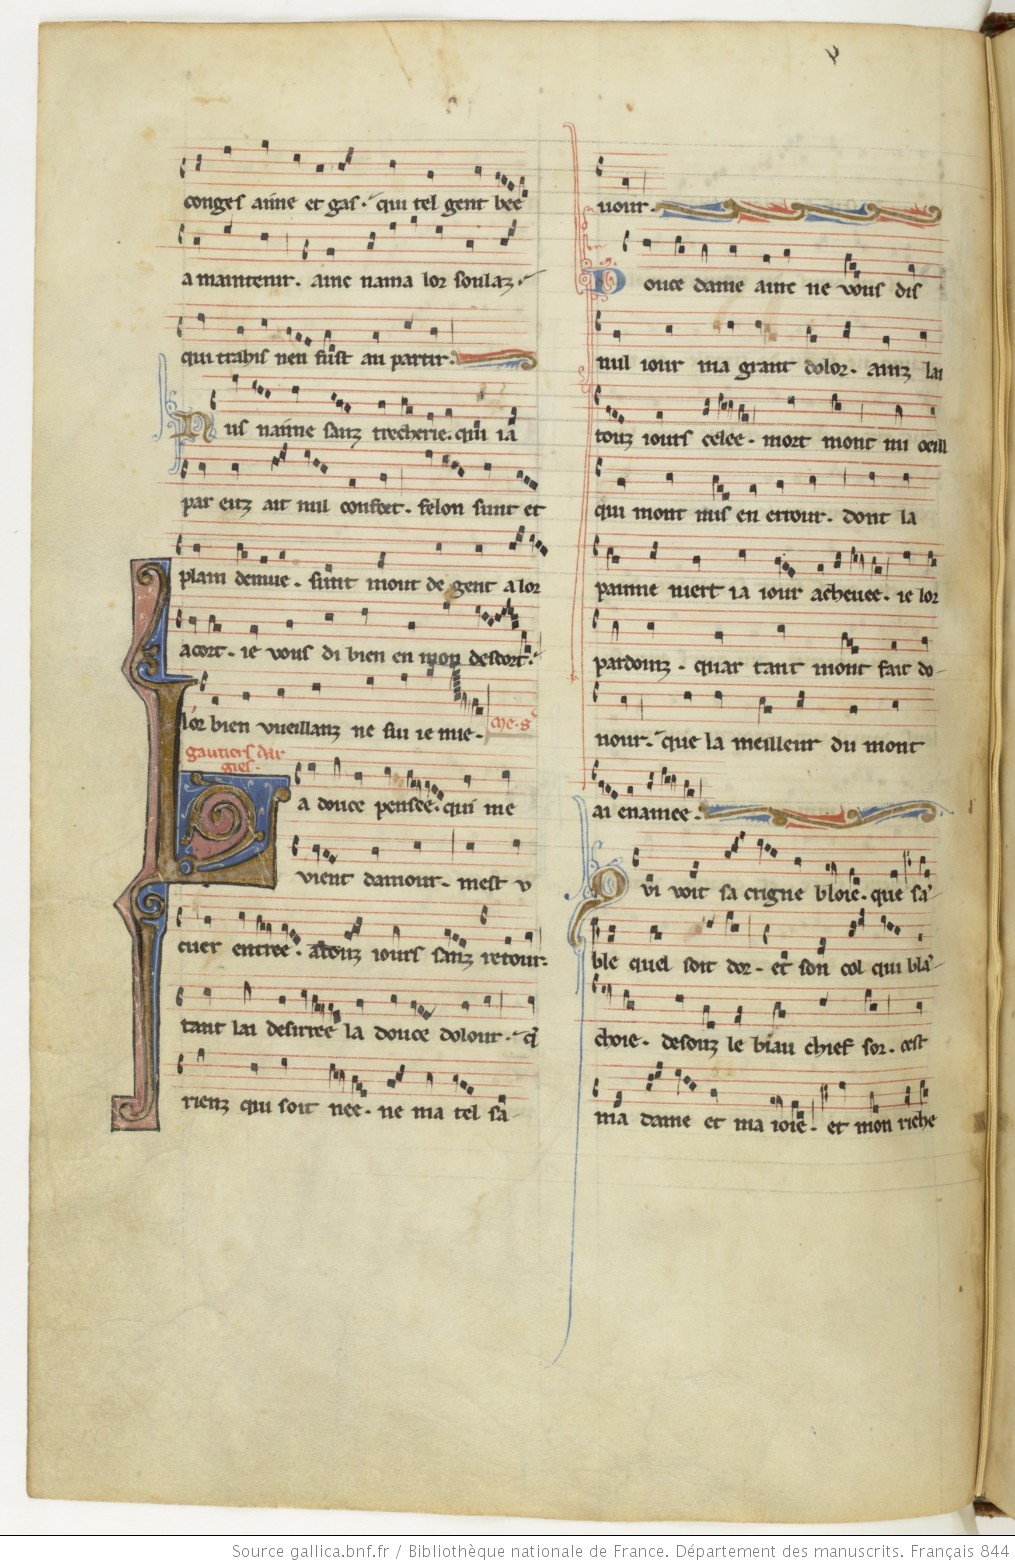 conges aime et gas. qui tel gent bee
a maintenir. ainc nama lor soulaz.
qui trahis nen fust au partir.
Nus naime sanz trecherie. qui ia
par euz ait nul confort. felon sunt et
plain denuie. sunt mout de gent a lor
acort. ie vous di bien en mon descort.
lor bien vueillanz ne sui ie mie.
me. s
gautiers dar
gies.
La douce pensee. qui me
vient damour. mest v
cuer entree. a touz iours sanz retour.
tant lai desirree la douce dolour. q̃
rienz qui soit nee. ne ma tel sa
uour.
Douce dame ainc ne vous dis
nul iour ma grant dolor. ainz lai
touz iours celee. mort mont mi oeill
qui mont mis en errour. dont la
painne niert ia iour acheuee. ie lor
pardoinz. quar tant mont fait do-
nour. que la meilleur du mont
ai enamee.
Qvi voit sa crigne bloie. que sa-
ble quel soit dor. et son col qui bla-
choie. desouz le biau chief sor. cest
ma dame et ma ioie. et mon riche
Source gallica.bnf.fr / Bibliothèque nationale de France. Département des manuscrits. Français 844